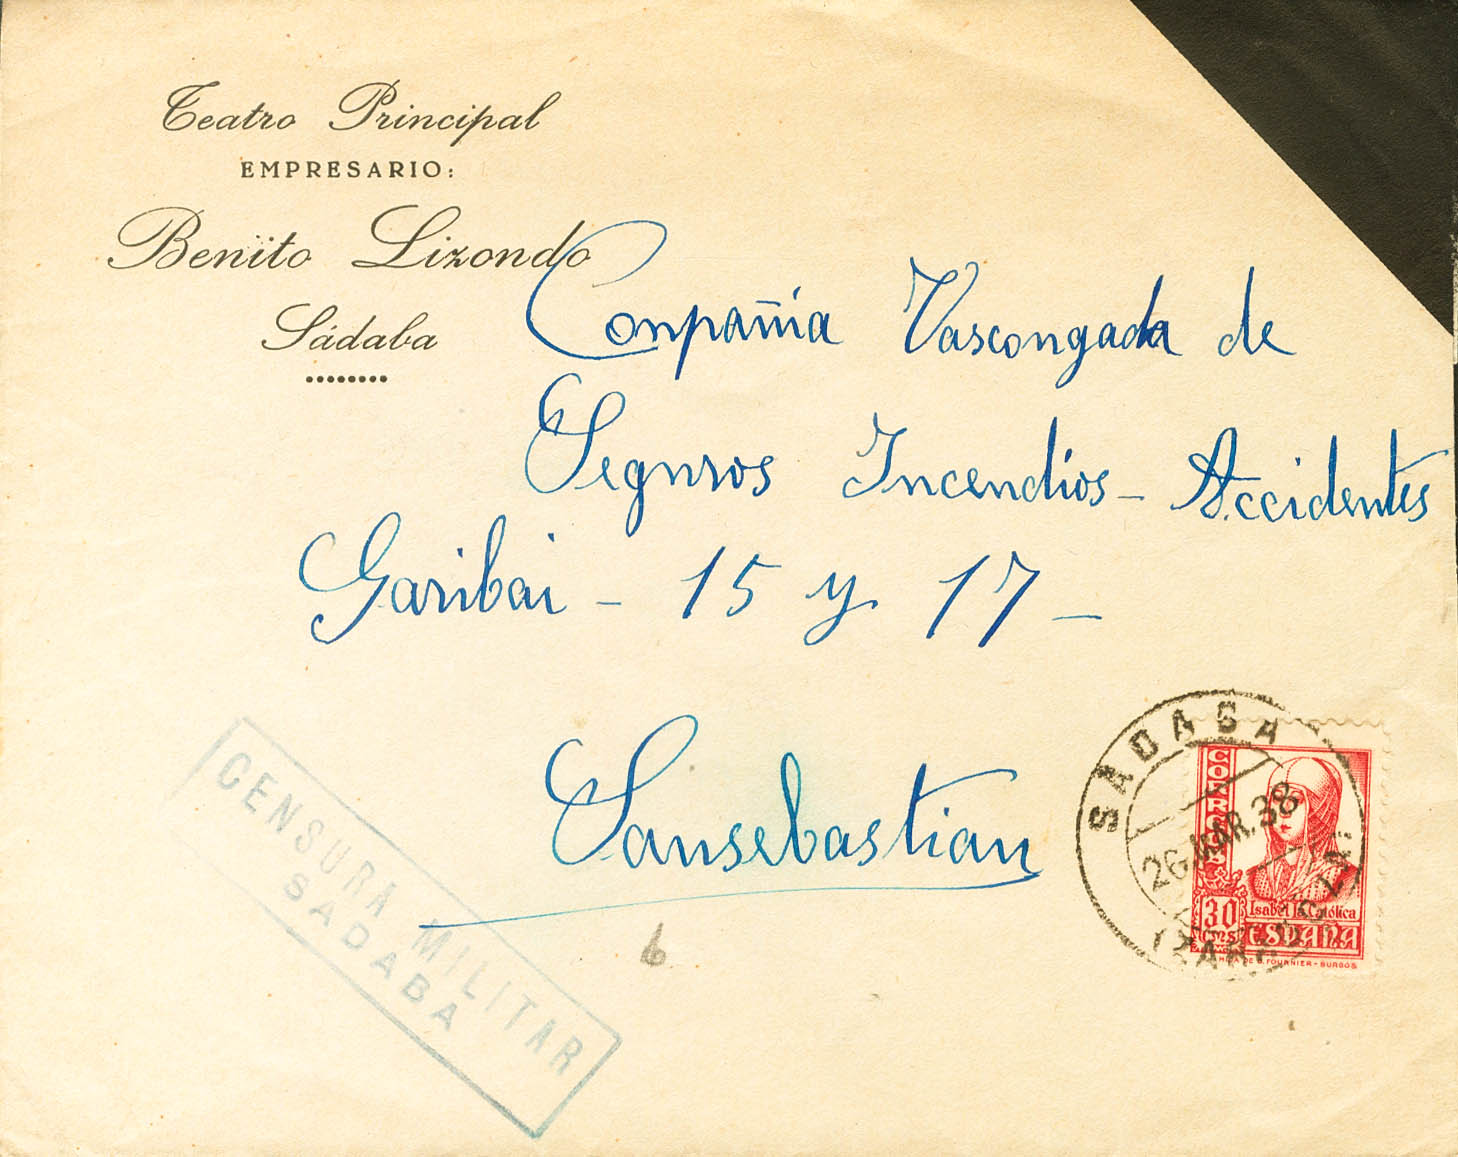 Teatro Principal
EMPRESARIO:
Benito Lizondo
Sádaba
Conpañia Vascongada de
Seguros Incendios - Accidentes
Garibai - 15 y 17 -
Sansebastian
6
CENSURA MILITAR
SADABA
SADABA
26 MAR. 38
(ZARAGOZA)
CORREOS
30
CTMS
Isabel la Católica
ESPAÑA
HIJA DE B. FOURNIER - BURGOS